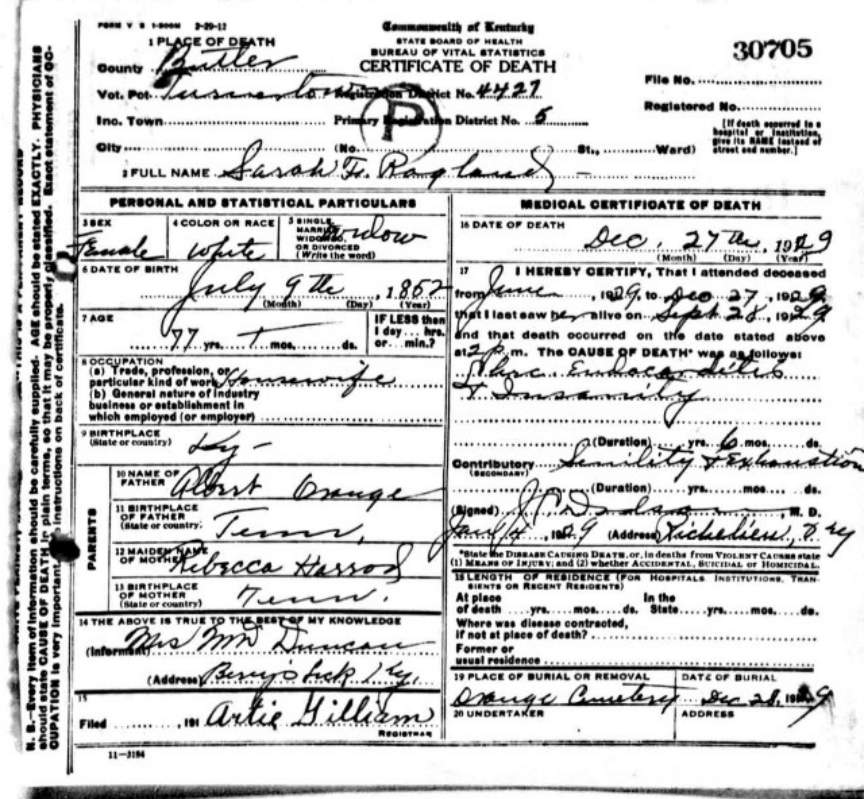 FORM V S 1-500M 2-29-12
Commonwealth of Kentucky
STATE BOARD OF HEALTH
BUREAU OF VITAL STATISTICS
CERTIFICATE OF DEATH
30705
1 PLACE OF DEATH
County Butler
Vot. Pct. Registration District No. 4427
File No.
Inc. Town Primary Registration District No. 5
P
Registered No.
City (No. St., Ward)
[If death occurred in a
hospital or institution,
give its NAME instead of
street and number.]
2 FULL NAME Sarah F. Ragland
PERSONAL AND STATISTICAL PARTICULARS
3 SEX
Female
4 COLOR OR RACE
White
5 SINGLE,
MARRIED,
WIDOWED,
OR DIVORCED
(Write the word)
Widow
6 DATE OF BIRTH
July 9th, 1852
(Month) (Day) (Year)
7 AGE
77 yrs. mos. ds.
IF LESS than
1 day... hrs.
or... min.?
8 OCCUPATION
(a) Trade, profession, or
particular kind of work Housewife
(b) General nature of industry
business or establishment in
which employed (or employer)
9 BIRTHPLACE
(State or country) Ky -
PARENTS
10 NAME OF
FATHER Albert Orange
11 BIRTHPLACE
OF FATHER
(State or country) Tenn,
12 MAIDEN NAME
OF MOTHER Rebecca Harrod
13 BIRTHPLACE
OF MOTHER
(State or country) Tenn.
14 THE ABOVE IS TRUE TO THE BEST OF MY KNOWLEDGE
(Informant) Mrs Duncan
(Address) Berry's Lick Ky.
15
Filed , 191 Artie Gilliam
REGISTRAR
11-3184
MEDICAL CERTIFICATE OF DEATH
16 DATE OF DEATH
Dec. 27th, 1929
(Month) (Day) (Year)
17 I HEREBY CERTIFY, That I attended deceased
from June, 1929, to Dec 27, 1929,
that I last saw her alive on Sept 28, 1929
and that death occurred on the date stated above
at 2 P. m. The CAUSE OF DEATH* was as follows:
Endocarditis
+ Insanity
(Duration) yrs. 6 mos. ds.
Contributory Senility + Exhaustion
(SECONDARY)
(Duration) yrs. mos. ds.
(Signed) M. D.
(Address) Richelieu, Ky
*State the DISEASE CAUSING DEATH, or, in deaths from VIOLENT CAUSES state
(1) MEANS OF INJURY; and (2) whether ACCIDENTAL, SUICIDAL OR HOMICIDAL.
18 LENGTH OF RESIDENCE (FOR HOSPITALS INSTITUTIONS, TRAN-
SIENTS OR RECENT RESIDENTS)
At place In the
of death yrs. mos. ds. State yrs. mos. ds.
Where was disease contracted,
if not at place of death?
Former or
usual residence
19 PLACE OF BURIAL OR REMOVAL
Orange Cemetery
DATE OF BURIAL
Dec 28, 1929
20 UNDERTAKER
ADDRESS
N. B.—Every item of information should be carefully supplied. AGE should be stated EXACTLY. PHYSICIANS
should state CAUSE OF DEATH in plain terms, so that it may be properly classified. Exact statement of OC-
CUPATION is very important. instructions on back of certificate.